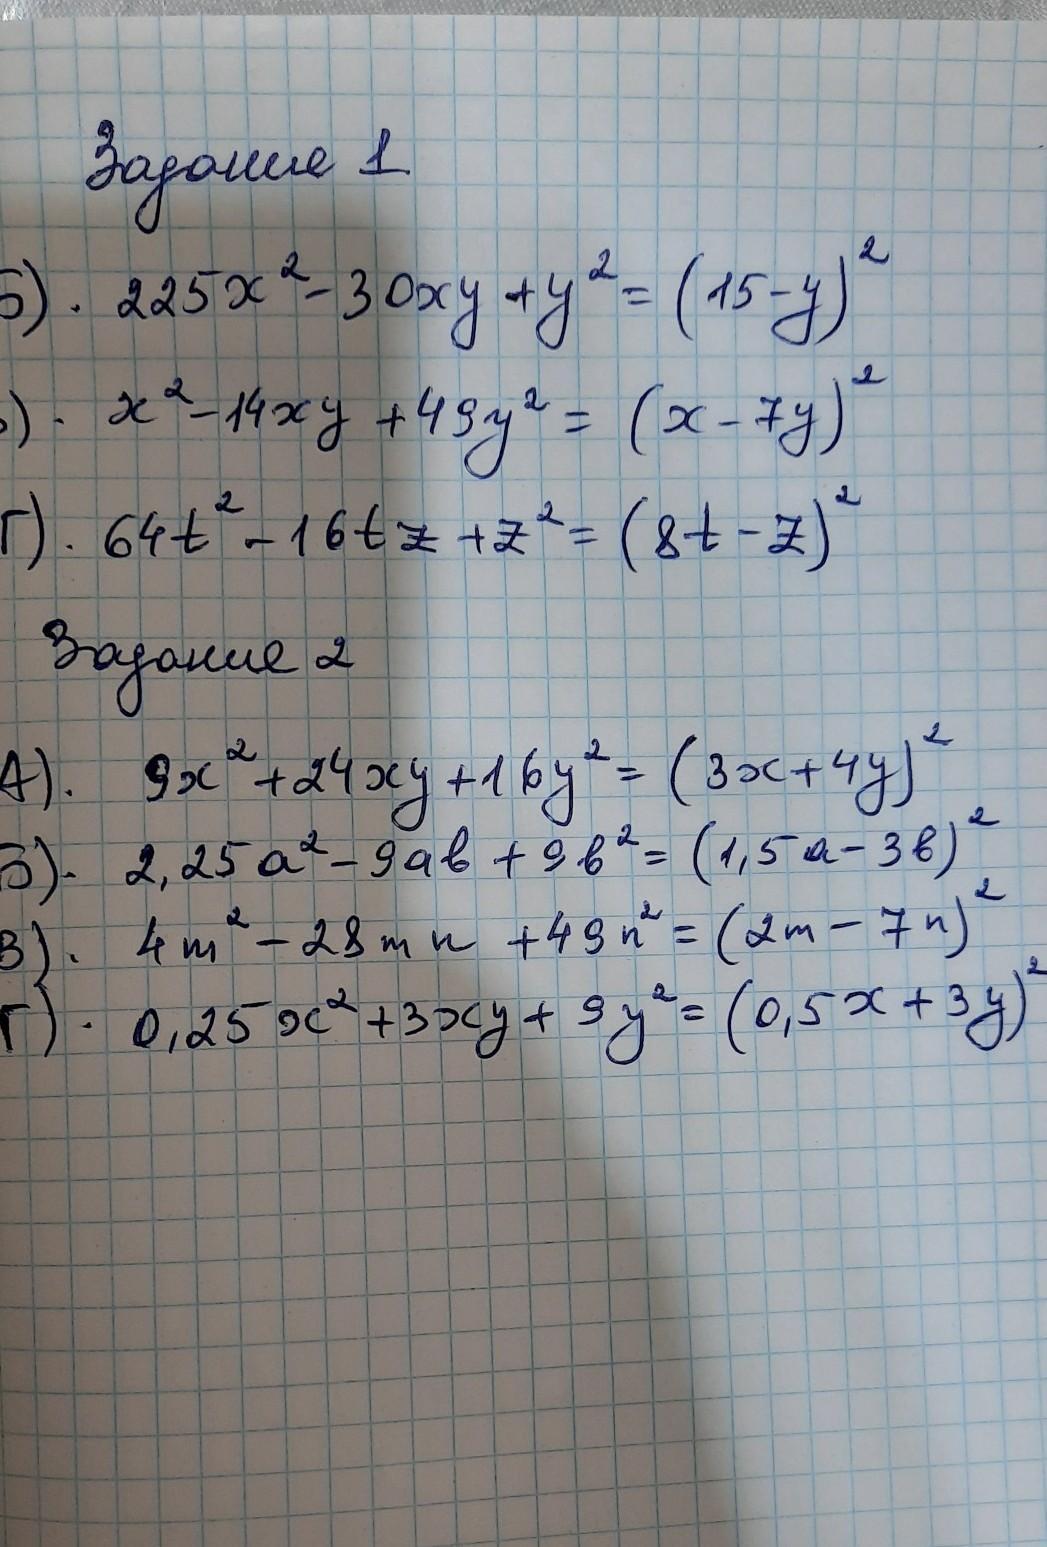 Задание 1
Б). 225x² - 30xy + y² = (15 - y)²
В). x² - 14xy + 49y² = (x - 7y)²
Г). 64t² - 16tz + z² = (8t - z)²
Задание 2
А). 9x² + 24xy + 16y² = (3x + 4y)²
Б). 2,25a² - 9ab + 9b² = (1,5a - 3b)²
В). 4m² - 28mn + 49n² = (2m - 7n)²
Г). 0,25x² + 3xy + 9y² = (0,5x + 3y)²